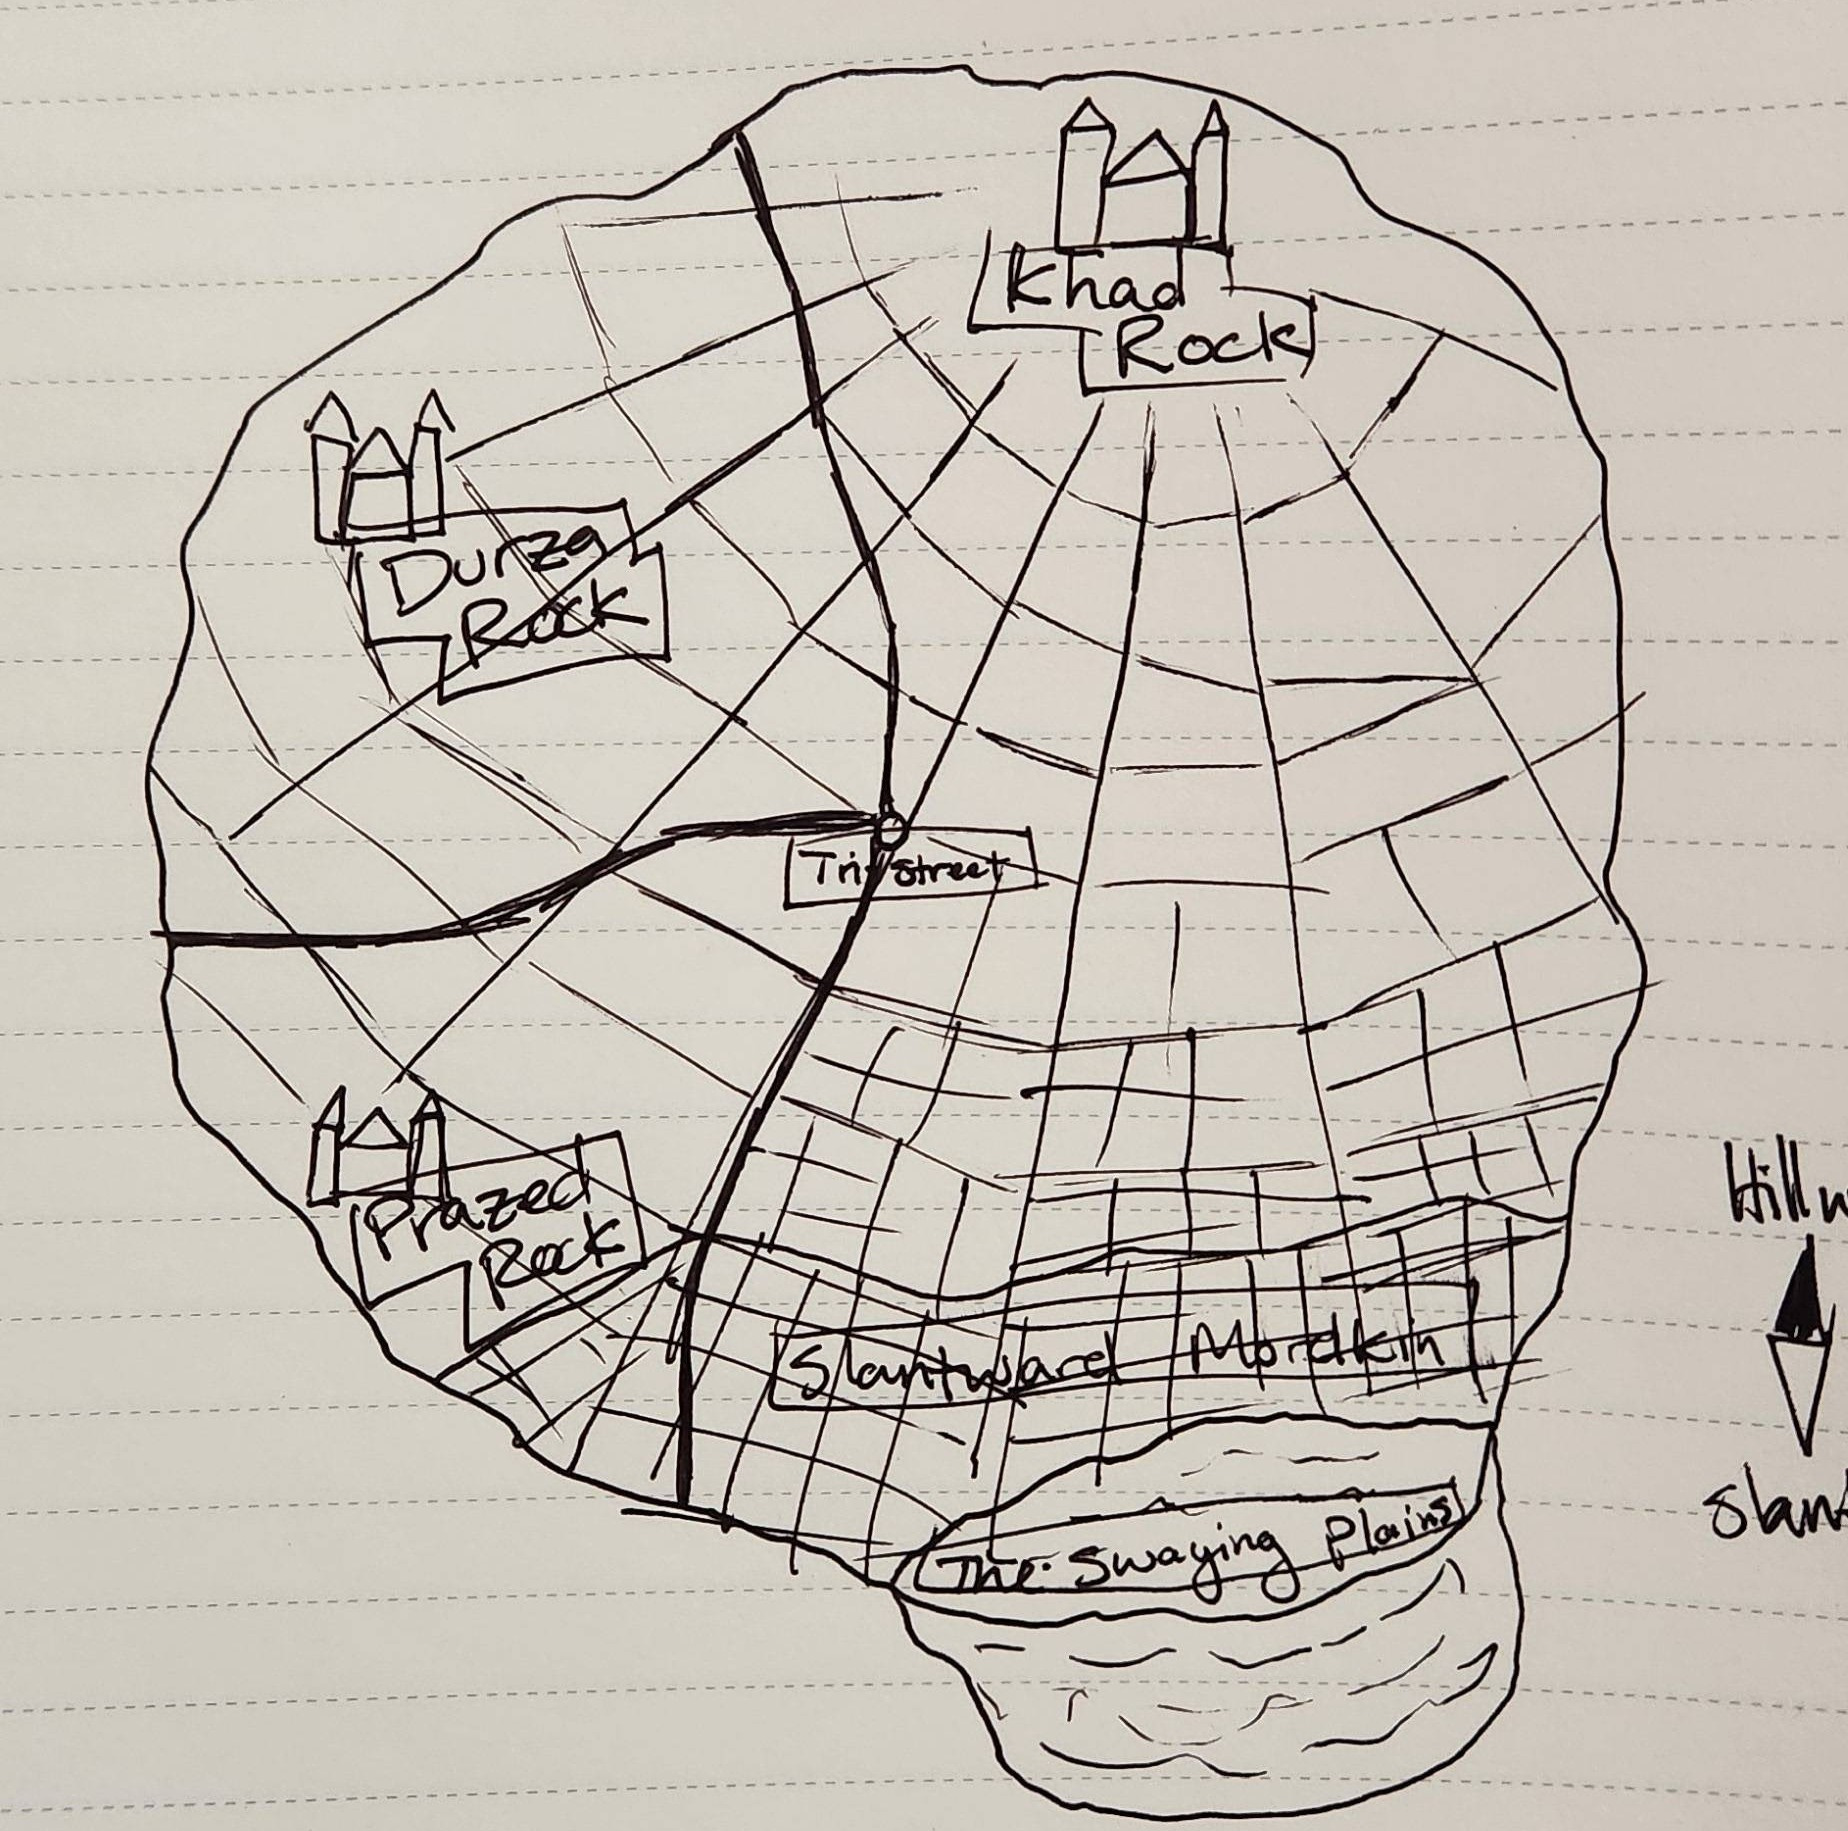 Khad
Rock
Durza
Rock
Tri-Street
Prazed
Rock
Hillw
Slantward Mordkin
Slant
The Swaying Plains